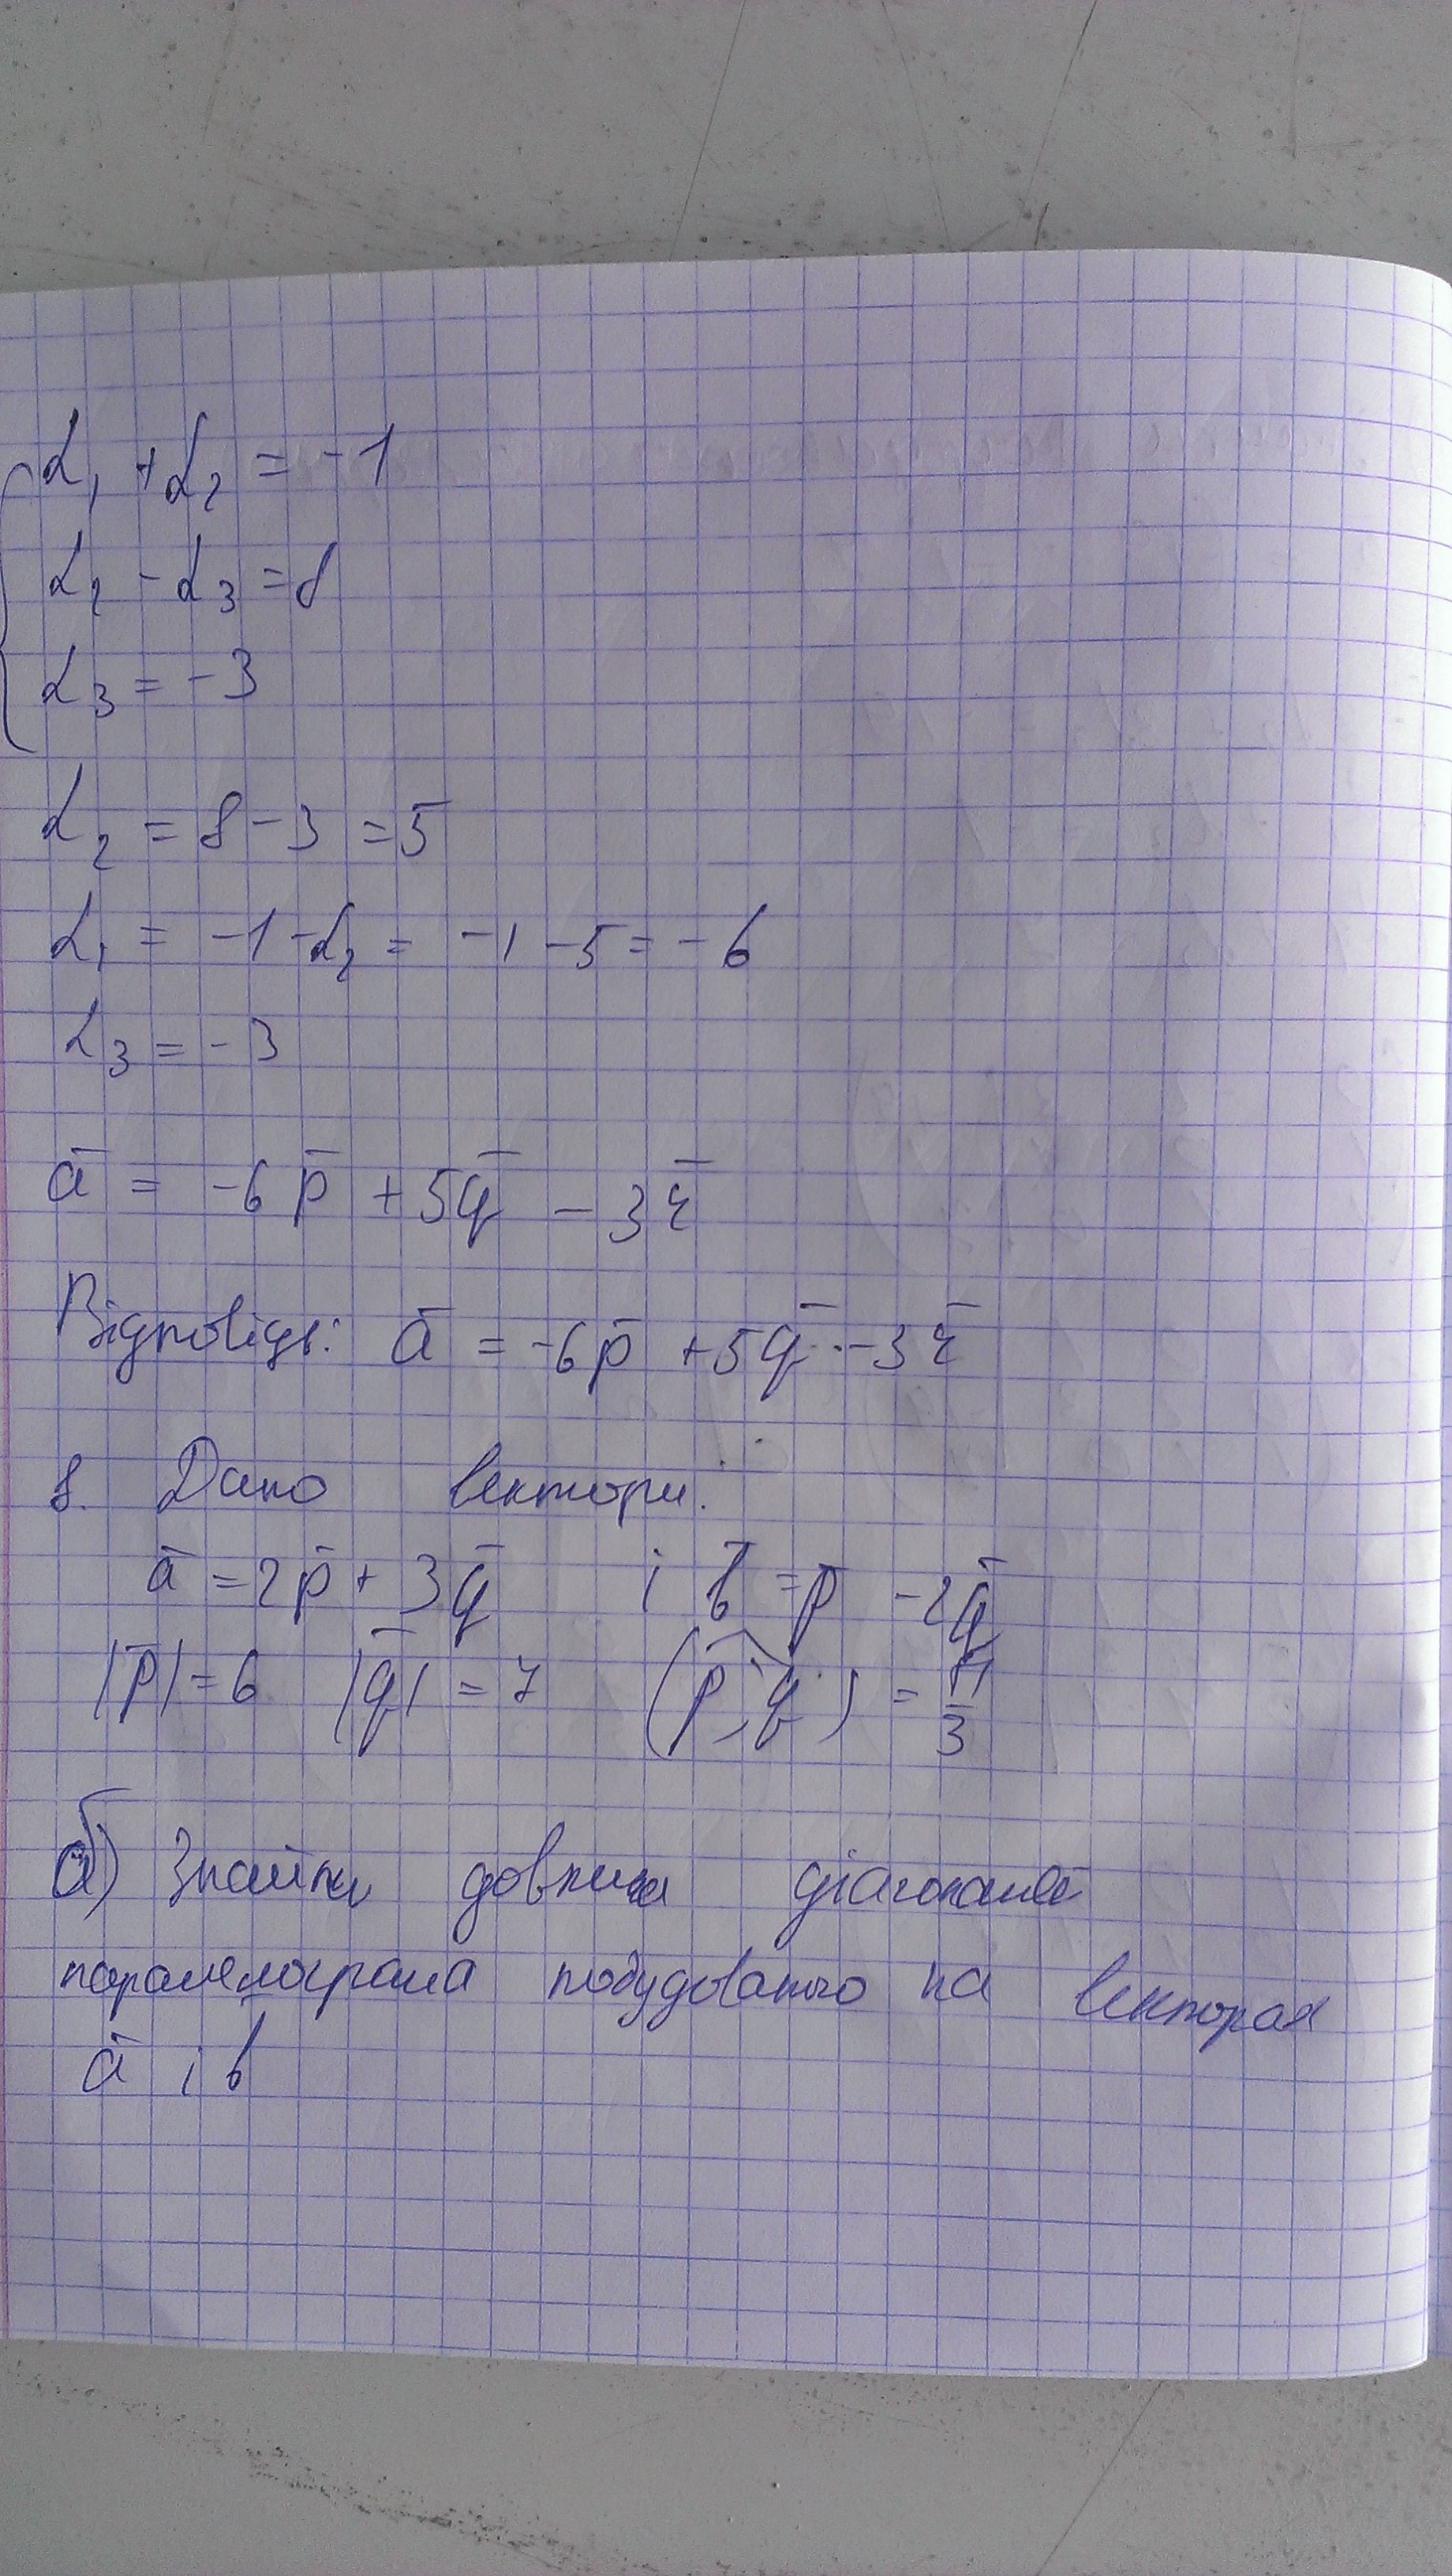 α₁ + α₂ = -1
α₂ - α₃ = 8
α₃ = -3
α₂ = 8 - 3 = 5
α₁ = -1 - α₂ = -1 - 5 = -6
α₃ = -3
a̅ = -6p̅ + 5q̅ - 3r̅
Відповідь: a̅ = -6p̅ + 5q̅ - 3r̅
8. Дано вектори:
a̅ = 2p̅ + 3q̅ і b̅ = p̅ - 2q̅
|p̅| = 6 |q̅| = 7 (p̅, q̅) = π/3
а) Знайти довжини діагоналей
паралелограма побудованого на векторах
a̅ і b̅